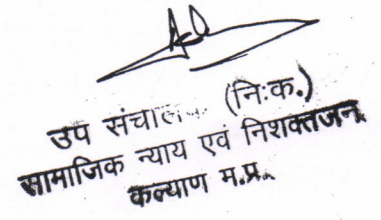 उप संचालक (नि:क.)
सामाजिक न्याय एवं निशक्तजन
कल्याण म.प्र.